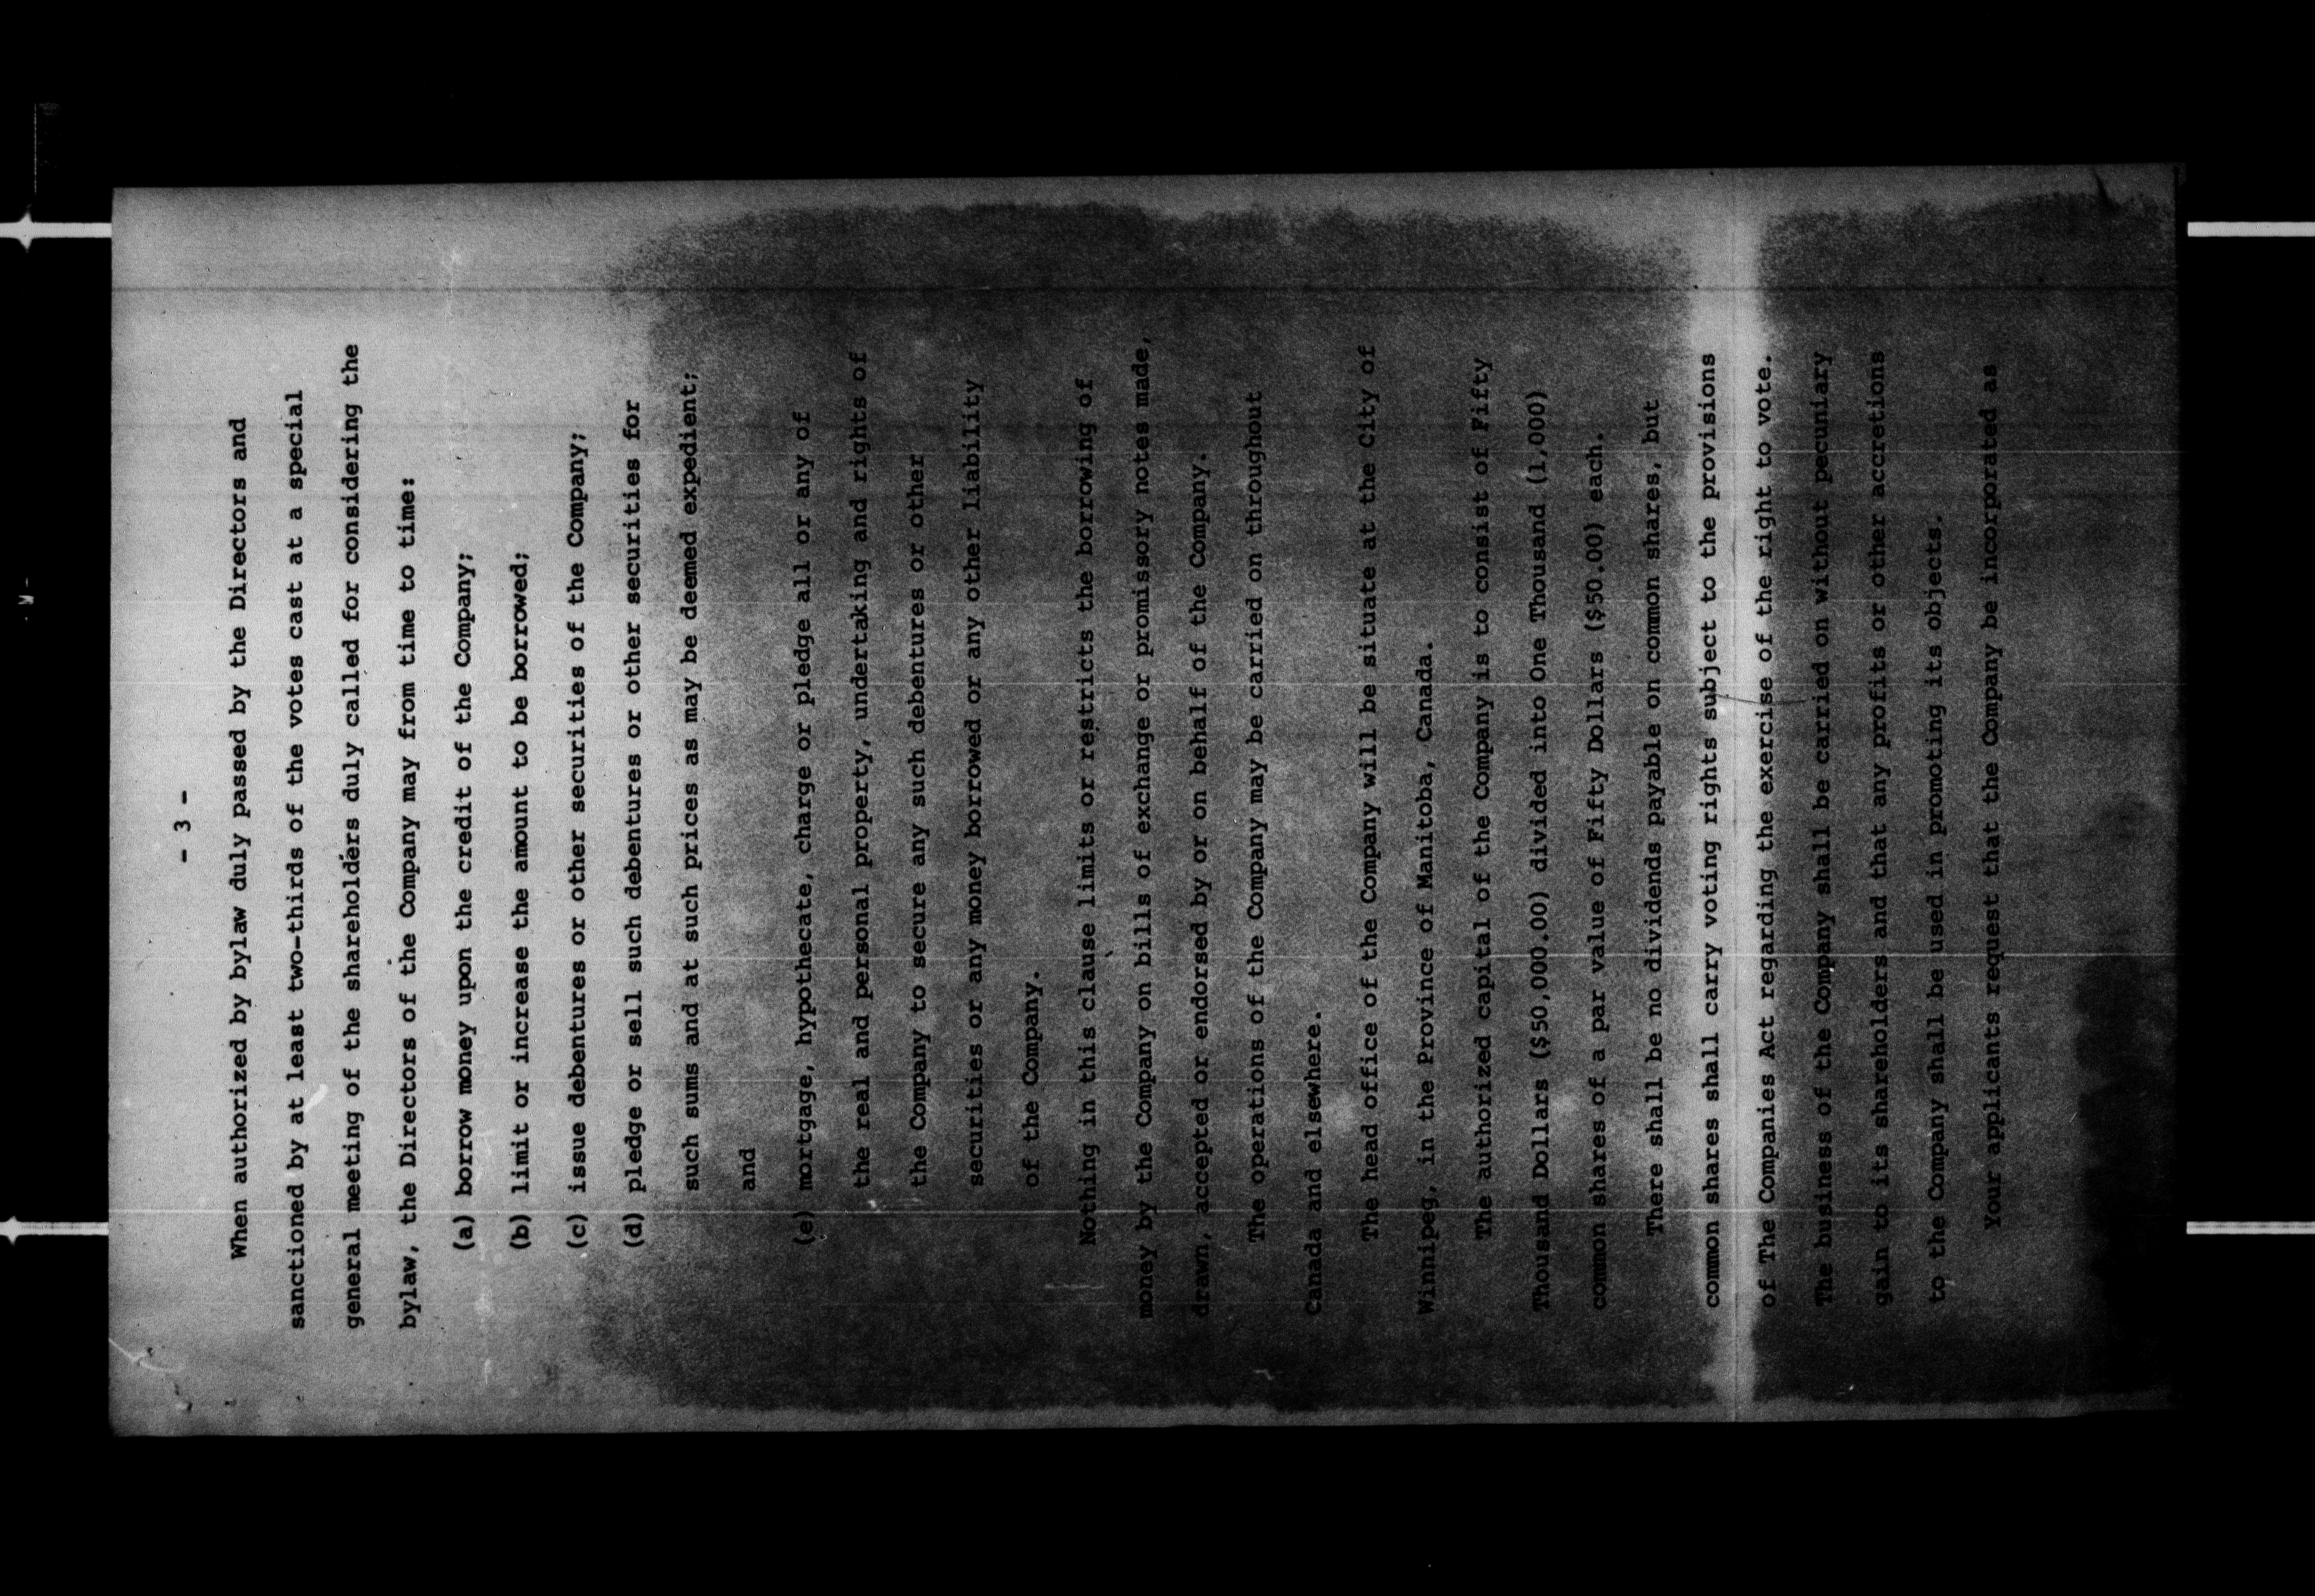 - 3 -
When authorized by bylaw duly passed by the Directors and
sanctioned by at least two-thirds of the votes cast at a special
general meeting of the shareholders duly called for considering the
bylaw, the Directors of the Company may from time to time:
(a) borrow money upon the credit of the Company;
(b) limit or increase the amount to be borrowed;
(c) issue debentures or other securities of the Company;
(d) pledge or sell such debentures or other securities for
such sums and at such prices as may be deemed expedient;
and
(e) mortgage, hypothecate, charge or pledge all or any of
the real and personal property, undertaking and rights of
the Company to secure any such debentures or other
securities or any money borrowed or any other liability
of the Company.
Nothing in this clause limits or restricts the borrowing of
money by the Company on bills of exchange or promissory notes made,
drawn, accepted or endorsed by or on behalf of the Company.
The operations of the Company may be carried on throughout
Canada and elsewhere.
The head office of the Company will be situate at the City of
Winnipeg, in the Province of Manitoba, Canada.
The authorized capital of the Company is to consist of Fifty
Thousand Dollars ($50,000.00) divided into One Thousand (1,000)
common shares of a par value of Fifty Dollars ($50.00) each.
There shall be no dividends payable on common shares, but
common shares shall carry voting rights subject to the provisions
of The Companies Act regarding the exercise of the right to vote.
The business of the Company shall be carried on without pecuniary
gain to its shareholders and that any profits or other accretions
to the Company shall be used in promoting its objects.
Your applicants request that the Company be incorporated as